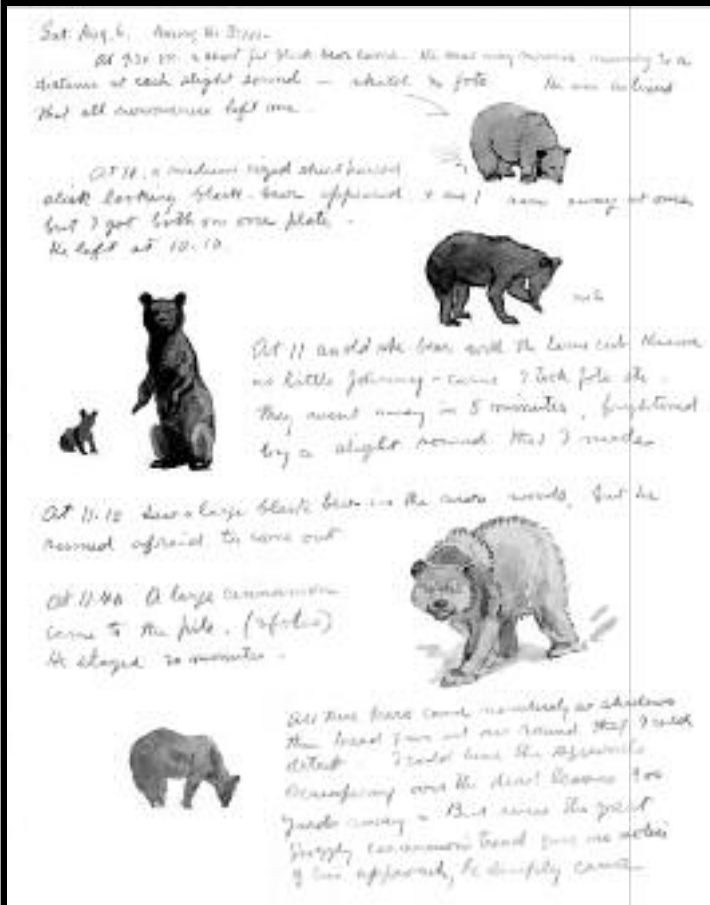 Sat. Aug. 6. Among the
At 9.30 a short fat black bear came. He was very nervous running to a
distance at each slight sound — sketch & foto He was
that all nervousness left me.
At 10. a medium sized short haired
sleek looking black-bear appeared, & ran away at once
but I got both on one plate.
He left at 10.10.
At 11 an old she bear with the lame cub known
as little Johnny - came I took foto etc.
They went away in 5 minutes, frightened
by a slight sound that I made
At 11.10 saw a large black bear in the woods, but he
seemed afraid to come out
At 11.40 A large cinnamon
came to the pile. (2 fotos)
He stayed 20 minutes.
All these bears came noiselessly as shadows
their tread gave out no sound that I could
detect. I could hear the squirrels
scampering over the dead leaves
yards away - But the great
grizzly cinnamon's tread gave me no notice
of his approach, he simply came